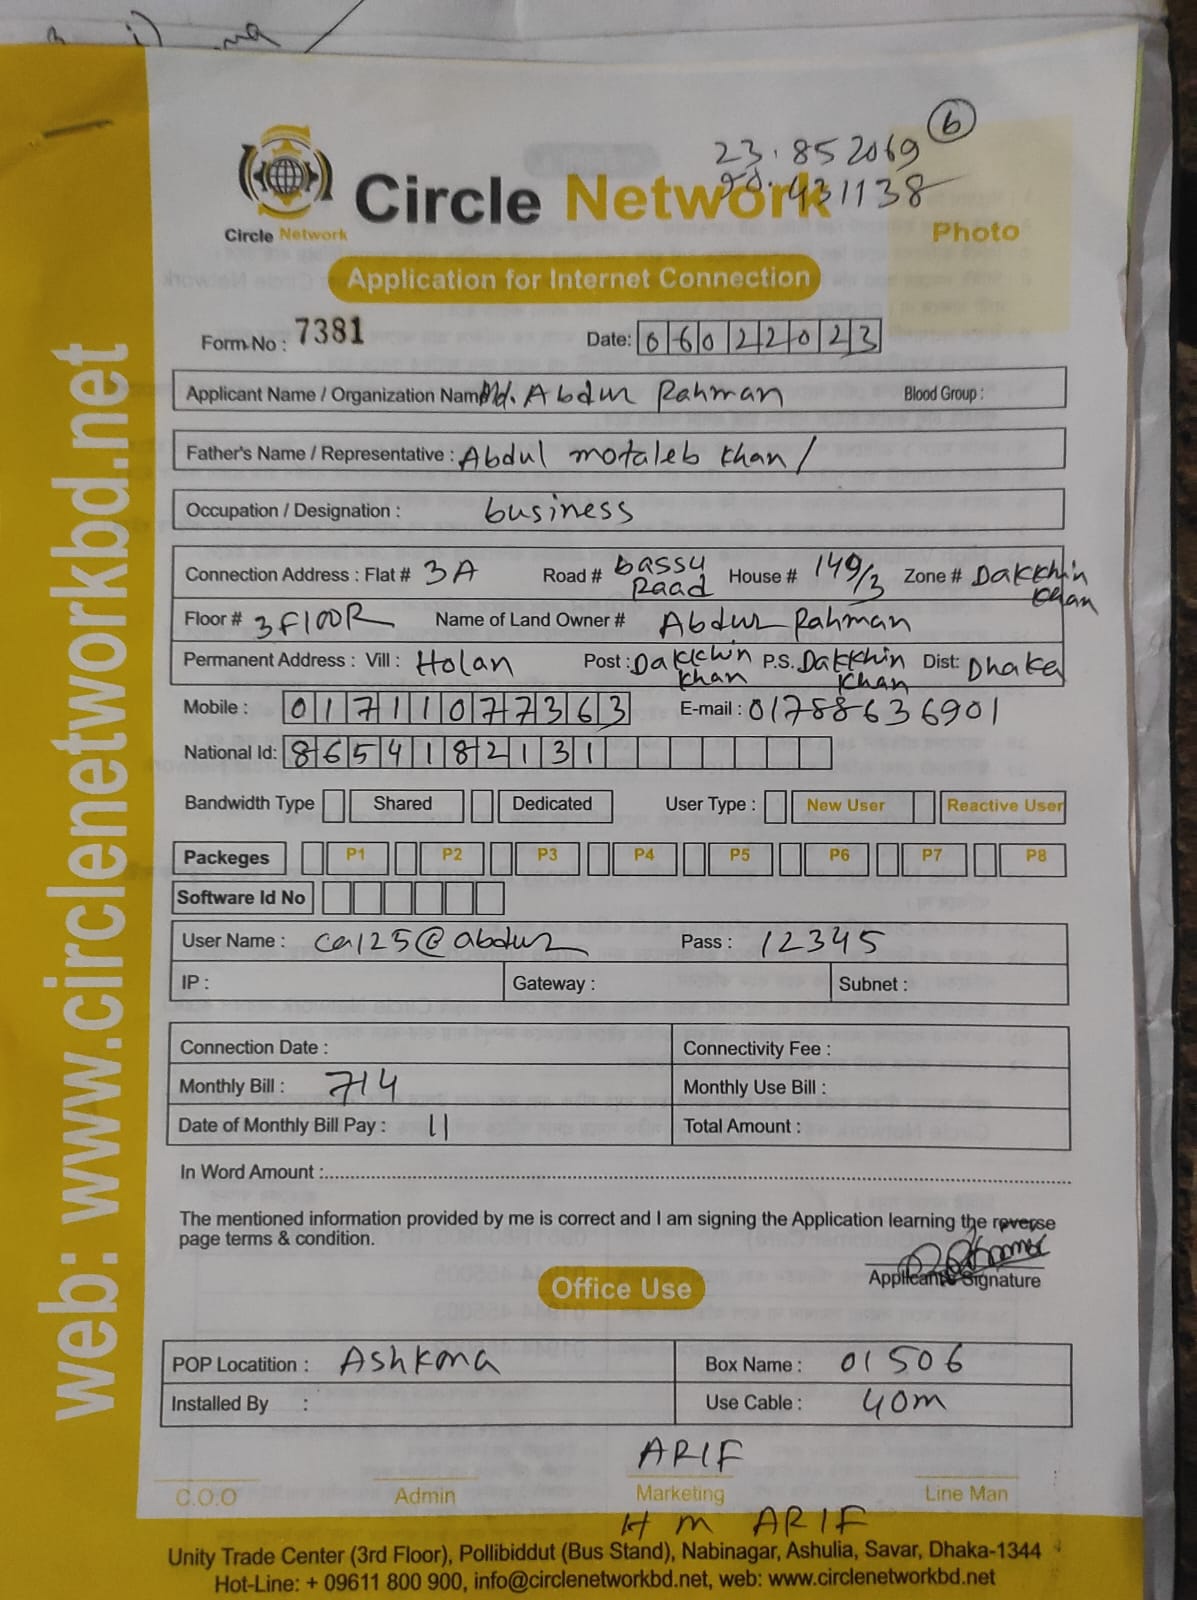 6
23.852069
90.431138
Circle Network
Circle Network
Photo
Application for Internet Connection
Form No : 7381 Date: 06022023
Applicant Name / Organization Name Md. Abdur Rahman Blood Group :
Father's Name / Representative : Abdul motaleb khan /
Occupation / Designation : business
Connection Address : Flat # 3A Road # bassu Raad House # 149/3 Zone # Dakkhin khan
Floor # 3 FlooR Name of Land Owner # Abdur Rahman
Permanent Address : Vill : Holan Post : Dakkhin khan P.S. Dakkhin khan Dist: Dhaka
Mobile : 01711077363 E-mail : 01788636901
National Id: 8654182131
Bandwidth Type Shared Dedicated User Type : New User Reactive User
Packeges P1 P2 P3 P4 P5 P6 P7 P8
Software Id No
User Name : ca125@abdur Pass : 12345
IP : Gateway : Subnet :
Connection Date : Connectivity Fee :
Monthly Bill : 714 Monthly Use Bill :
Date of Monthly Bill Pay : 11 Total Amount :
In Word Amount :
The mentioned information provided by me is correct and I am signing the Application learning the reverse
page terms & condition.
Applicants Signature
Office Use
POP Locatition : Ashkona Box Name : 01506
Installed By : Use Cable : 40m
ARIF
C.O.O Admin Marketing Line Man
H M ARIF
Unity Trade Center (3rd Floor), Pollibiddut (Bus Stand), Nabinagar, Ashulia, Savar, Dhaka-1344
Hot-Line: + 09611 800 900, info@circlenetworkbd.net, web: www.circlenetworkbd.net
web: www.circlenetworkbd.net